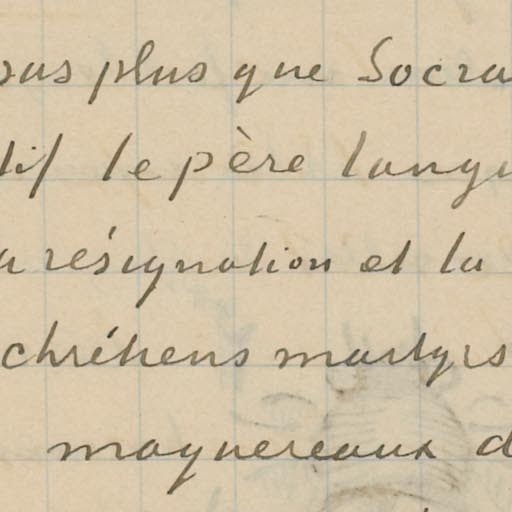 ous plus que Socra
tif le père langu
a résignation et la
chrétiens martyrs
maquereaux d